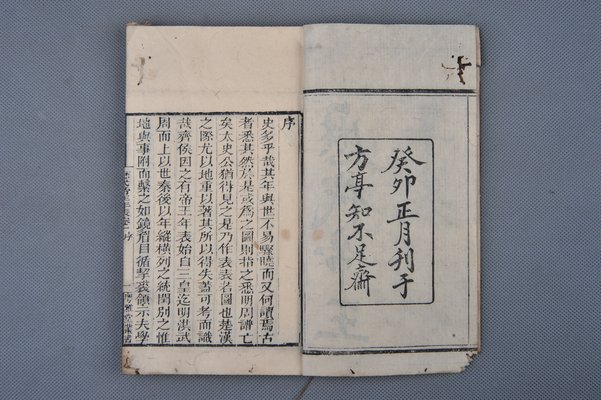 癸卯正月刊于
方亭知不足齋
序
史多乎哉其年與世不易驟曉而又何讀焉古
者悉其然於是或為之圖則悉明周譜亡
矣太史公猶得見之是乃作表表名圖也是漢
之際尤以地重以著其所以得失蓋可考而識
哉齊侯因之有帝王年表始自三皇迄明洪武
周而上以世秦後以年縱橫列之統閏別之惟
地與事附而繫之如鏡眉目循挈裘領示夫學
序